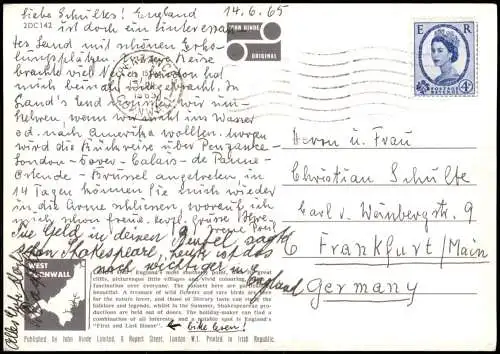 Liebe Schultes! England 14.6.65
2DC142
ist doch ein interessan-
tes Land mit schönen Erho-
lungsplätzen. Unsere Reise
brachte viel Neues. London hat
mich beinah
Land's End mussten wir um-
kehren, wenn wir nicht ins Wasser
od. nach Amerika wollten. Morgen
wird die Rückreise über Penzance-
London-Dover-Calais-de Panne-
Ostende-Brüssel angetreten. in
14 Tagen können Sie mich wieder
in die Arme schliessen, worauf ich
mich schon freue. herzl. Grüsse Ihre
"Tue Geld in deinen Beutel" sagte
schon Shakespeare, heute ist das
noch wichtiger in England
JOHN HINDE
ORIGINAL
E R
POSTAGE REVENUE
4D
Herrn u. Frau
Christian Schulte
Carl v. Weinberg str. 9
6 Frankfurt/Main
Germany
WEST
CORNWALL
England's most
cliffs, picturesque little villages and vivid consuming
fascination over everyone. The sunsets here are
beautiful. A treasure of wild flowers and rare birds are
for the nature lover, and those of literary taste can study the
folklore and legends, whilst in the Summer, Shakespearean pro-
ductions are held out of doors. The holiday-maker can find a
combination of all interests and a notable spot is England's
"First and Last House".
← bitte lesen!
Published by John Hinde Limited, 6 Rupert Street, London W.1. Printed in Irish Republic.